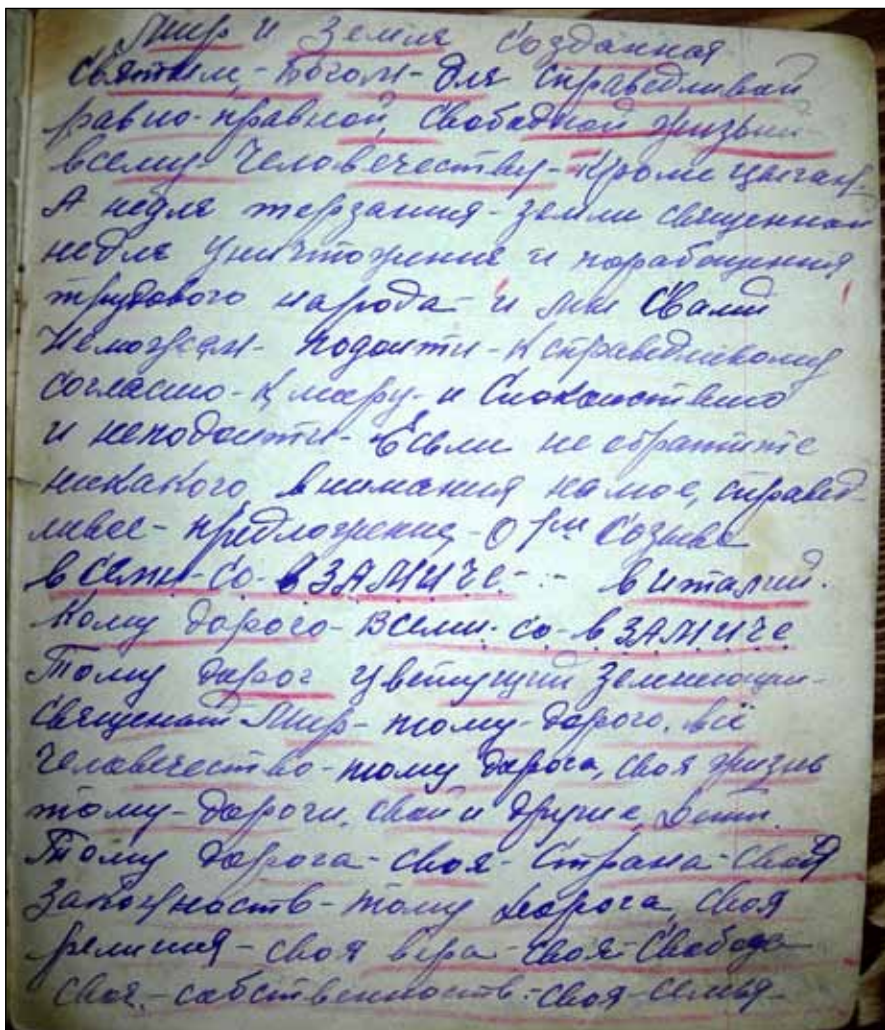 Мир и Земля созданная
Святым,- Богом- для справедливай
равно-правной, свободной жизьни-
всему- Человечеству- кроми цыган.
А недля терзания- земли священной
недля уничтожение и порабощения
трудового народа- и мы Свами
Неможем- подоити- к справедливому
согласию- к миру- и Спокоиствию
и неподоити- Если не обратите
никакого внимания на мое, справед-
ливое- предложение,- О Созыве
в Семи-со-вЗАМИЧе- - в италий.
Кому дорого- Всеми-со-вЗАМИЧе
Тому дорог цветущий
священай Мир- тому- дорого. всё
Человечество- тому дорога, своя жизнь
тому- дороги. свои и другие, дети.
Тому дорога- своя- Страна- свой
тому дорога, своя
религия- своя вера- своя- Свобода
своя- собственность- своя- семья-